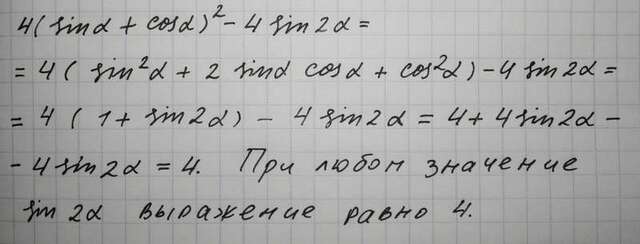 4(sinα + cosα)² - 4 sin2α =
= 4( sin²α + 2 sinα cosα + cos²α) - 4 sin2α =
= 4 ( 1 + sin2α) - 4 sin2α = 4 + 4sin2α -
- 4 sin2α = 4. При любом значение
sin 2α выражение равно 4.